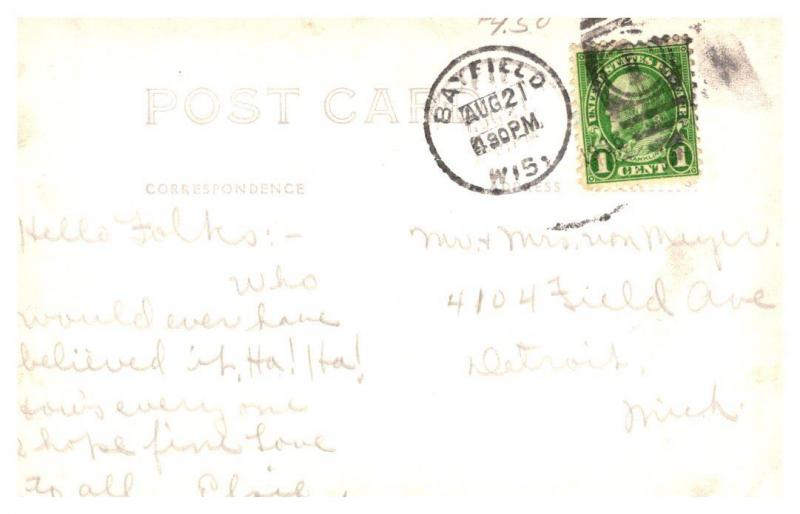 4.50
BAYFIELD
AUG 21
4 30 PM
WIS.
UNITED STATES POSTAGE
FRANKLIN
1 CENT 1
POST CARD
CORRESPONDENCE
ADDRESS
Hello Folks:-
Who
would ever have
believed it, Ha! Ha!
How's every one
I hope fine Love
to all
Mr. & Mrs. von Meyer.
4104 Field Ave
Detroit,
Mich.